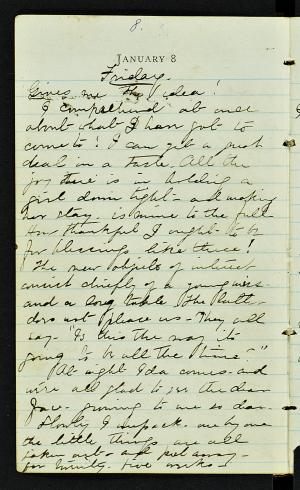 8.
JANUARY 8
Friday.
Gives me the idea!
I comprehend at once
about what I have got to
come to! I can get a great
deal in a taste. All the
joy there is in holding a
girl down tight - and making
her stay - is mine to the full.
How thankful I ought to be
for blessings like these!
The new objects of interest
consist chiefly of a young
and a long table. The
does not please us - They all
say - "Is this the way it's
going to be all the time -"
At night Ida comes - and
we're all glad to see the dear
face - growing to me so dear.
Slowly I unpack - one by one
the little things are all
taken out - and put away -
for twenty-five weeks -